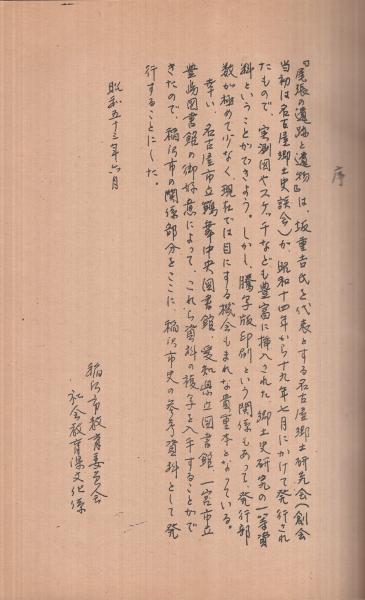 序
『尾張の遺跡と遺物』は、坂重吉氏を代表とする名古屋郷土研究会(創会
当初は名古屋郷土史談会)が、昭和十四年から十九年七月にかけて発行され
たもので、実測図やスケッチなども豊富に挿入された、郷土史研究の一等資
料ということができよう。しかし、謄写版印刷という関係もあって、発行部
数が極めて少なく、現在では目にする機会もまれな貴重本となっている。
幸い、名古屋市立鶴舞中央図書館、愛知県立図書館、一宮市立
豊島図書館の御好意によって、これら資料の複写を入手することがで
きたので、稲沢市の関係部分をここに、稲沢市史の参考資料として発
行することにした。
昭和五十三年六月
稲沢市教育委員会
社会教育課文化係